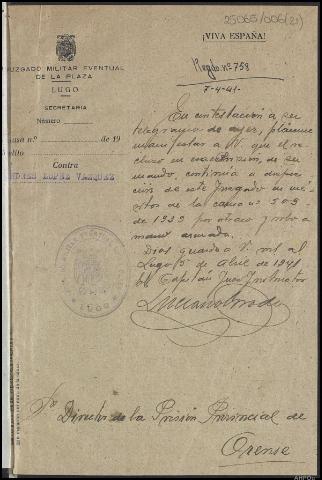 25065/006(21)
¡VIVA ESPAÑA!
JUZGADO MILITAR EVENTUAL
DE LA PLAZA
LUGO
SECRETARIA
Número
usa n.º de 19
Contra
ANDRES LOPEZ VAZQUEZ
Regdo nº 758
7-4-41-
En contestación a su
telegrama de ayer, pláceme
manifestar a V. que el re-
cluso en esa Prisión, de su
mando, continúa a disposi-
ción de este Juzgado en mé-
ritos de la causa nº 503
de 1939 por atraco y robo a
mano armada.
Dios guarde a V. ms. as.
Lugo 5 de Abril de 1941
El Capitán Juez Instructor
LUGO
Sr. Director de la Prisión Provincial de
Orense
AHPOu